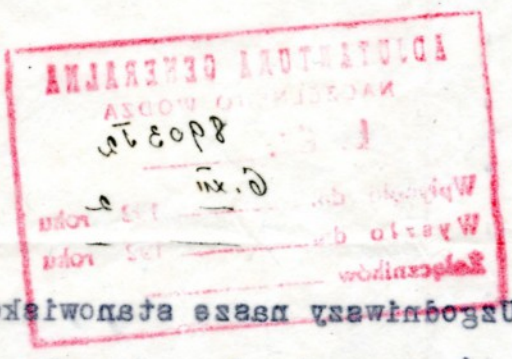 ADJUTANTURA GENERALNA
NACZELNEGO WODZA
L. dz.
8903
6. XII
Wpłynęło dn. 192 2 roku
Wyszło dn. 192 roku
Załączników
Uzgodniwszy nasze stanowisko